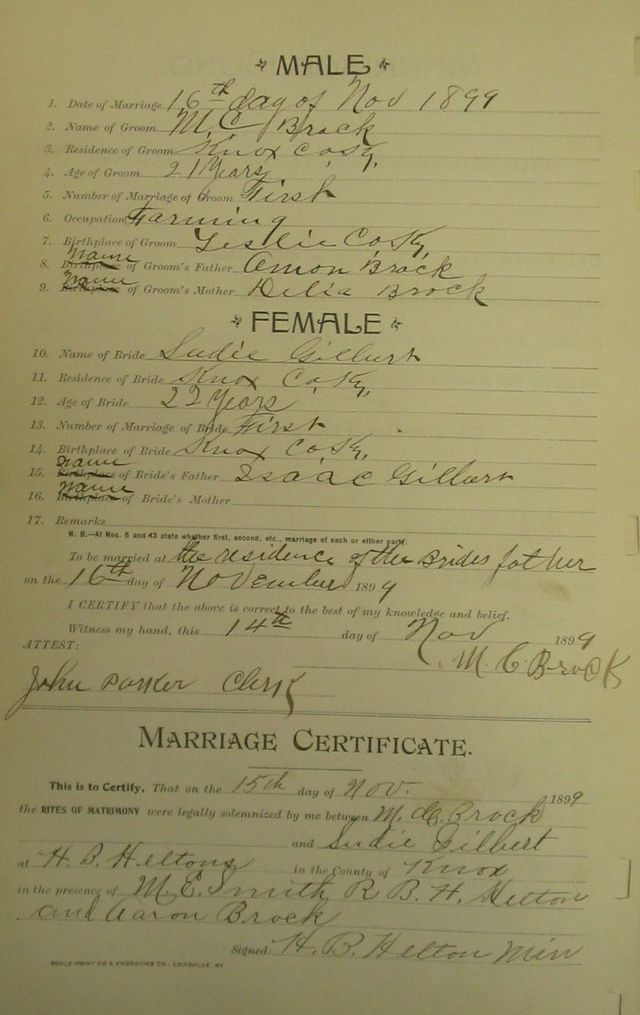 MALE
1. Date of Marriage 16th day of Nov 1899
2. Name of Groom M. C Brock
3. Residence of Groom Knox Co Ky,
4. Age of Groom 21 Years
5. Number of Marriage of Groom First
6. Occupation Farming
7. Birthplace of Groom Leslie Co Ky,
8. Birthplace Name of Groom's Father Amon Brock
9. Birthplace Name of Groom's Mother Delia Brock
FEMALE
10. Name of Bride Sudie Gilbert
11. Residence of Bride Knox Co Ky,
12. Age of Bride 22 Years
13. Number of Marriage of Bride First
14. Birthplace of Bride Knox Co Ky,
15. Birthplace Name of Bride's Father Isaac Gilbert
16. Birthplace Name of Bride's Mother
17. Remarks
N. B.—At Nos. 5 and 43 state whether first, second, etc., marriage of each or either party.
To be married at the residence of the Brides father
on the 16th day of November 1899
I CERTIFY that the above is correct to the best of my knowledge and belief.
Witness my hand, this 14th day of Nov 1899
ATTEST: M. C. Brock
John Parker Clerk
MARRIAGE CERTIFICATE.
This is to Certify, That on the 15th day of Nov. 1899
the RITES OF MATRIMONY were legally solemnized by me between M. C. Brock
and Sudie Gilbert
at H. B. Heltons in the County of Knox
in the presence of M. E. Smith R B. H. Helton
and Aaron Brock
Signed: H. B. Helton Min